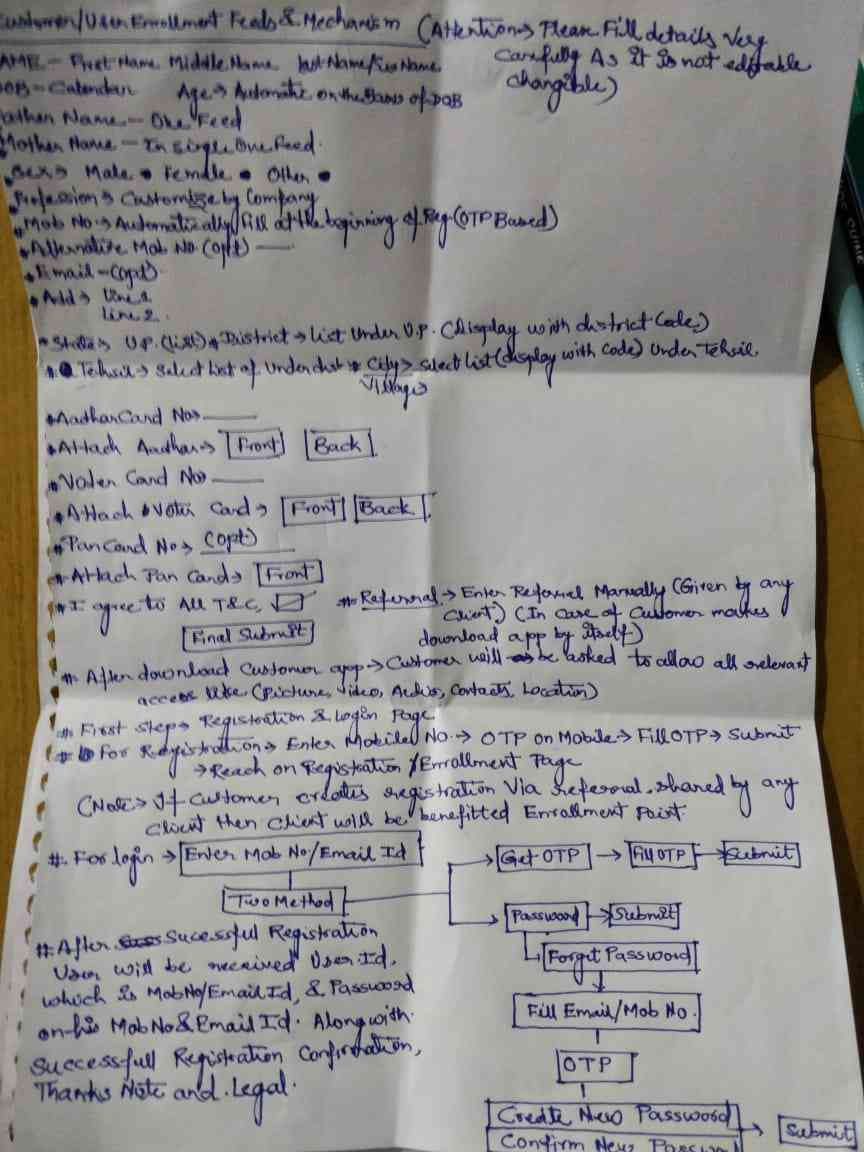 Customer/User Enrollment Feads & Mechanism (Attention→ Please Fill details Very
Carefully As it is not editable
changible)
NAME - First Name Middle Name last Name/Sur Name
DOB - Calendar Age→ Automatic on the Bases of DOB
Father Name - One Feed
Mother Name - In single One Feed.
Sex→ Male • Female • Other •
Profession→ Customize by Company
Mob No→ Automatically Fill at the beginning of Reg (OTP Based)
Alternative Mob No. (opt) ——
Email - (opt)
Add→ line 1
line 2.
State→ U.P. (list) District→ List Under U.P. (Display with district Code)
Tehsil→ Select list of Under dist City> Select List (display with Code) Under Tehsil.
Village>
Aadhar Card No→ ——
Attach Aadhar→ Front Back
Voter Card No ——
Attach Voter Card→ Front Back
Pan Card No→ (opt)
Attach Pan Card→ Front
I agree to All T&C, ☑
Final Submit
#. Referral.→ Enter Referral Manually (Given by any
Client) (In case of Customer makes
download app by itself)
#. After download Customer app→ Customer will be asked to allow all relevant
access like (Picture, Video, Audio, Contacts, Location)
#. First Step→ Registration & Login Page
#. For Registration→ Enter Mobile No.→ OTP on Mobile→ Fill OTP→ Submit
→ Reach on Registration/Enrollment Page
(Note→ If Customer creates registration Via referral shared by any
Client then Client will be benefitted Enrollment Point.
#. For login → Enter Mob No/Email Id
Two Method
Get OTP → Fill OTP → Submit
Password → Submit
Forgot Password
Fill Email/Mob No.
OTP
Create New Password
Confirm New Password
Submit
#. After Sucessful Registration
User will be received User Id,
which is Mob No/Email Id, & Password
on his Mob No & Email Id. Along with
Successfull Registration Confirmation,
Thanks Note and Legal.